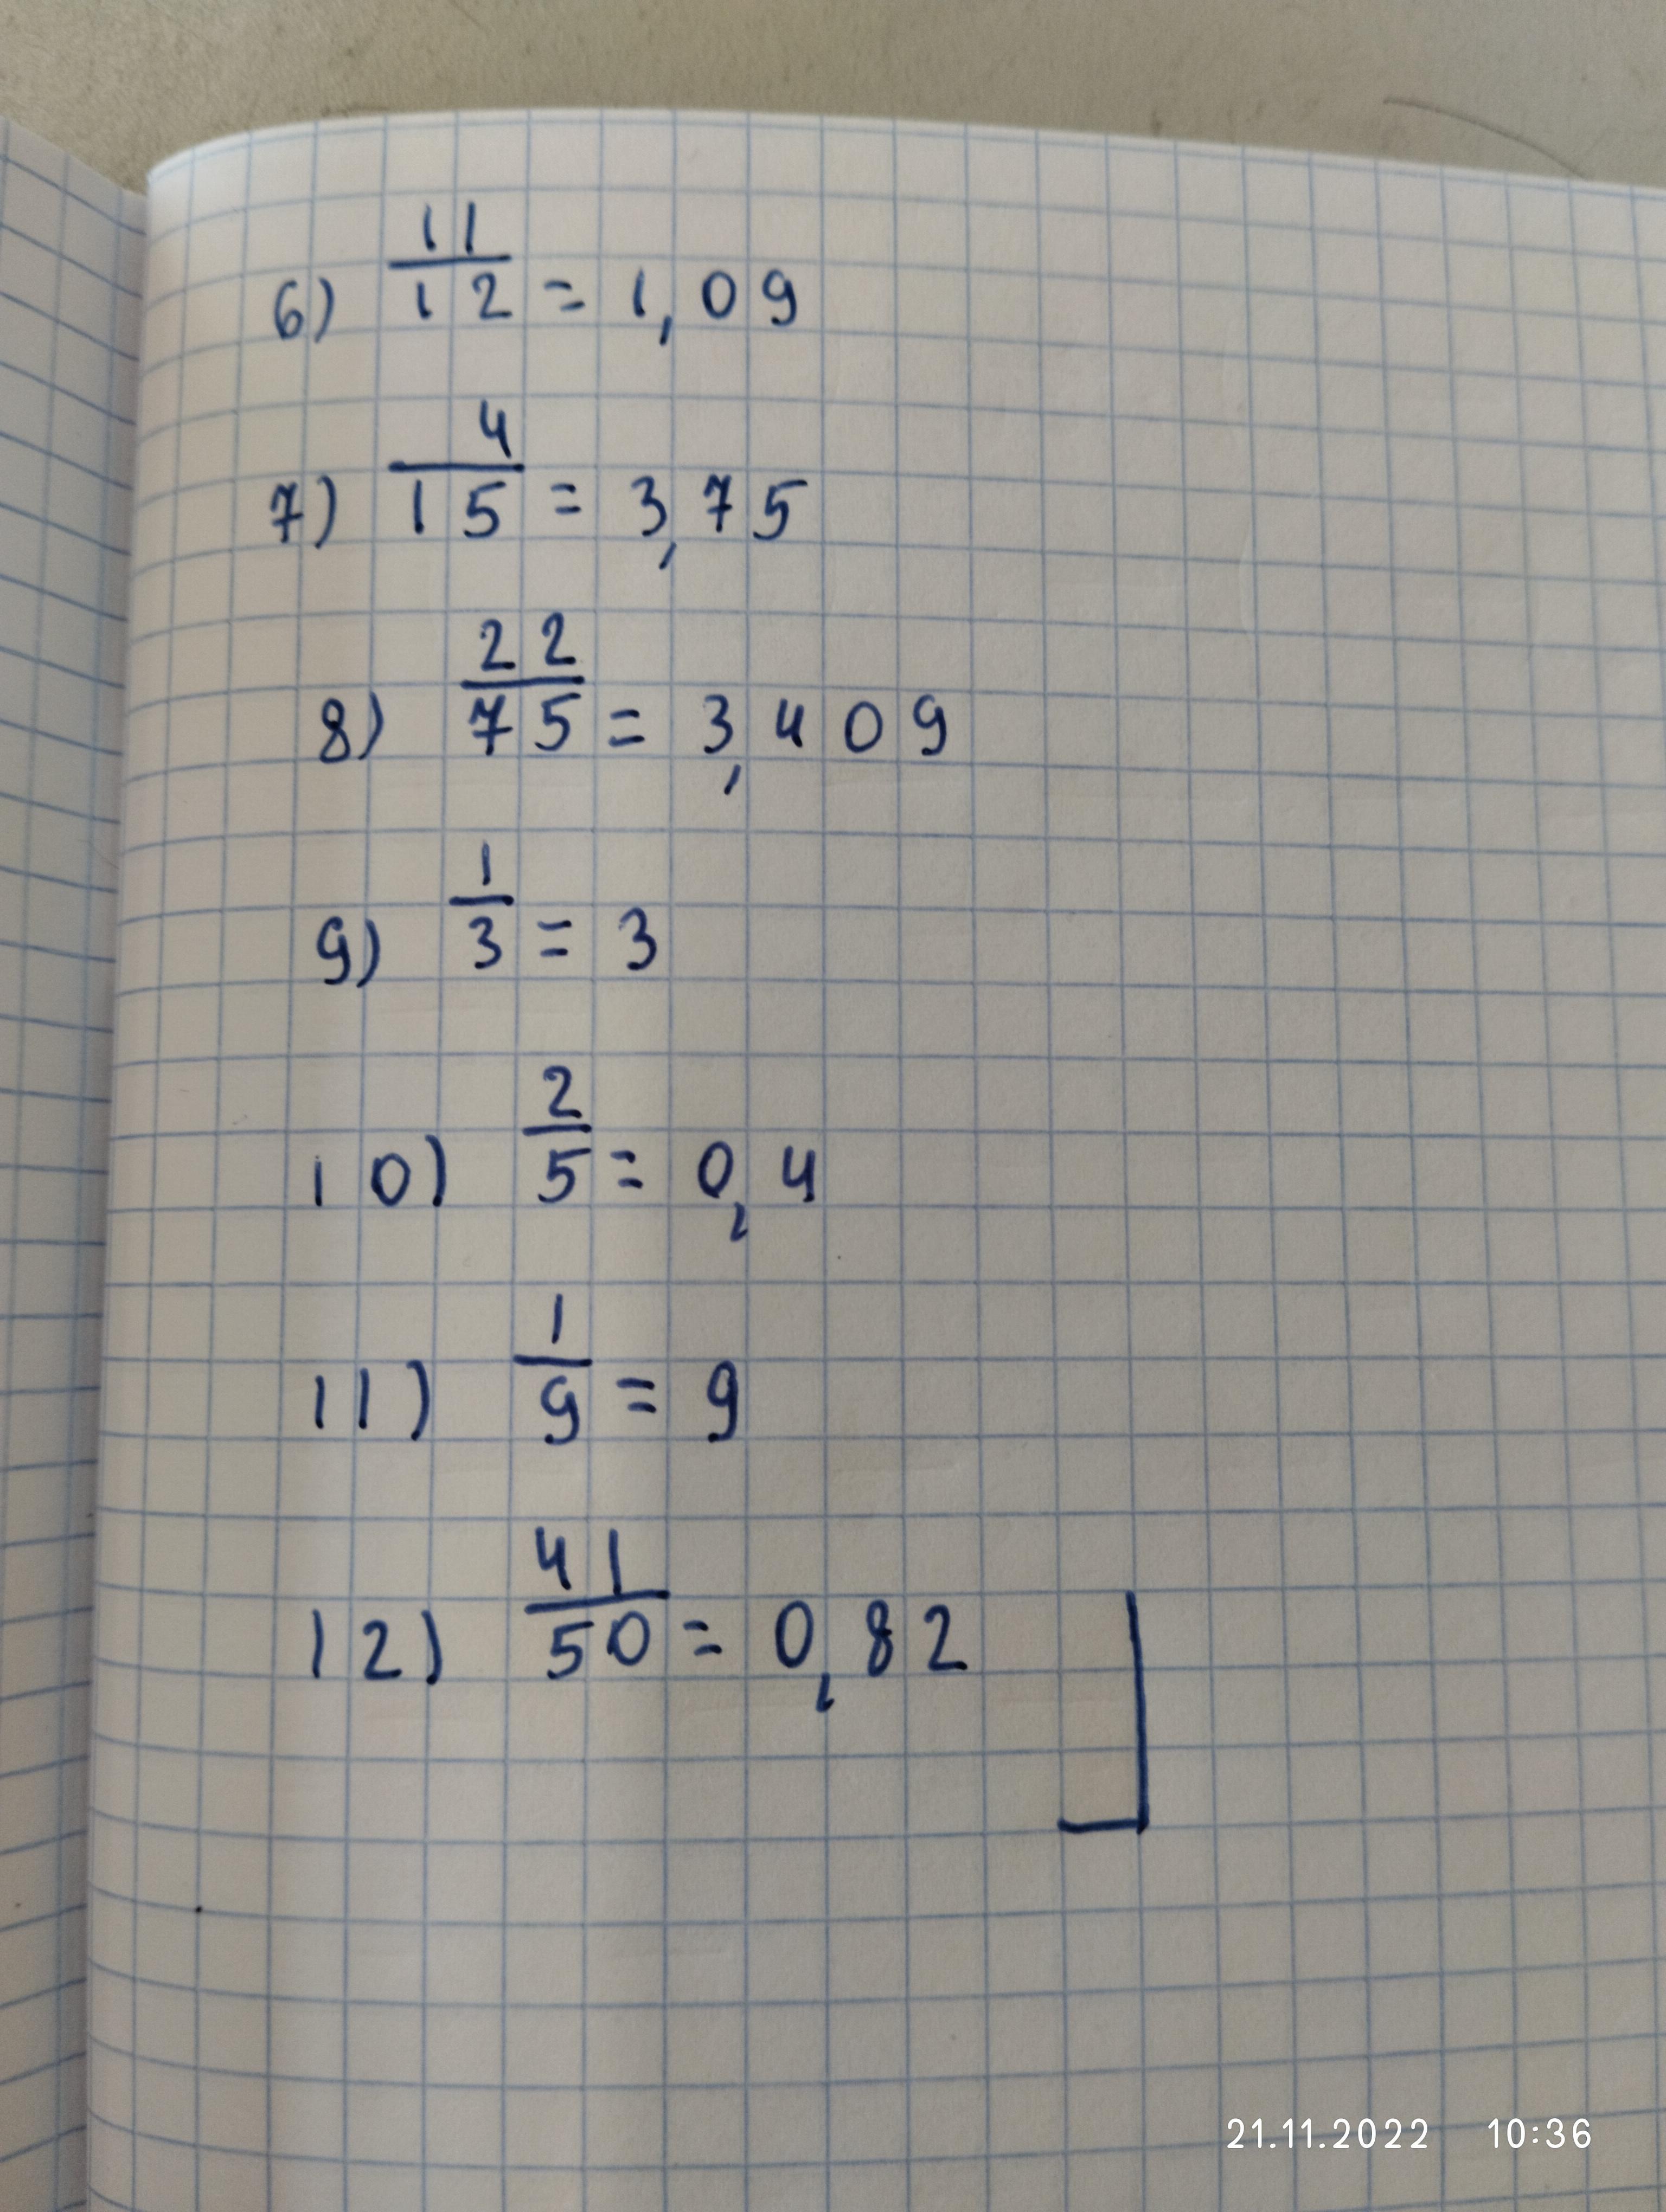 6) 11/12 = 1,09
7) 4/15 = 3,75
8) 22/75 = 3,409
9) 1/3 = 3
10) 2/5 = 0,4
11) 1/9 = 9
12) 41/50 = 0,82
21.11.2022 10:36